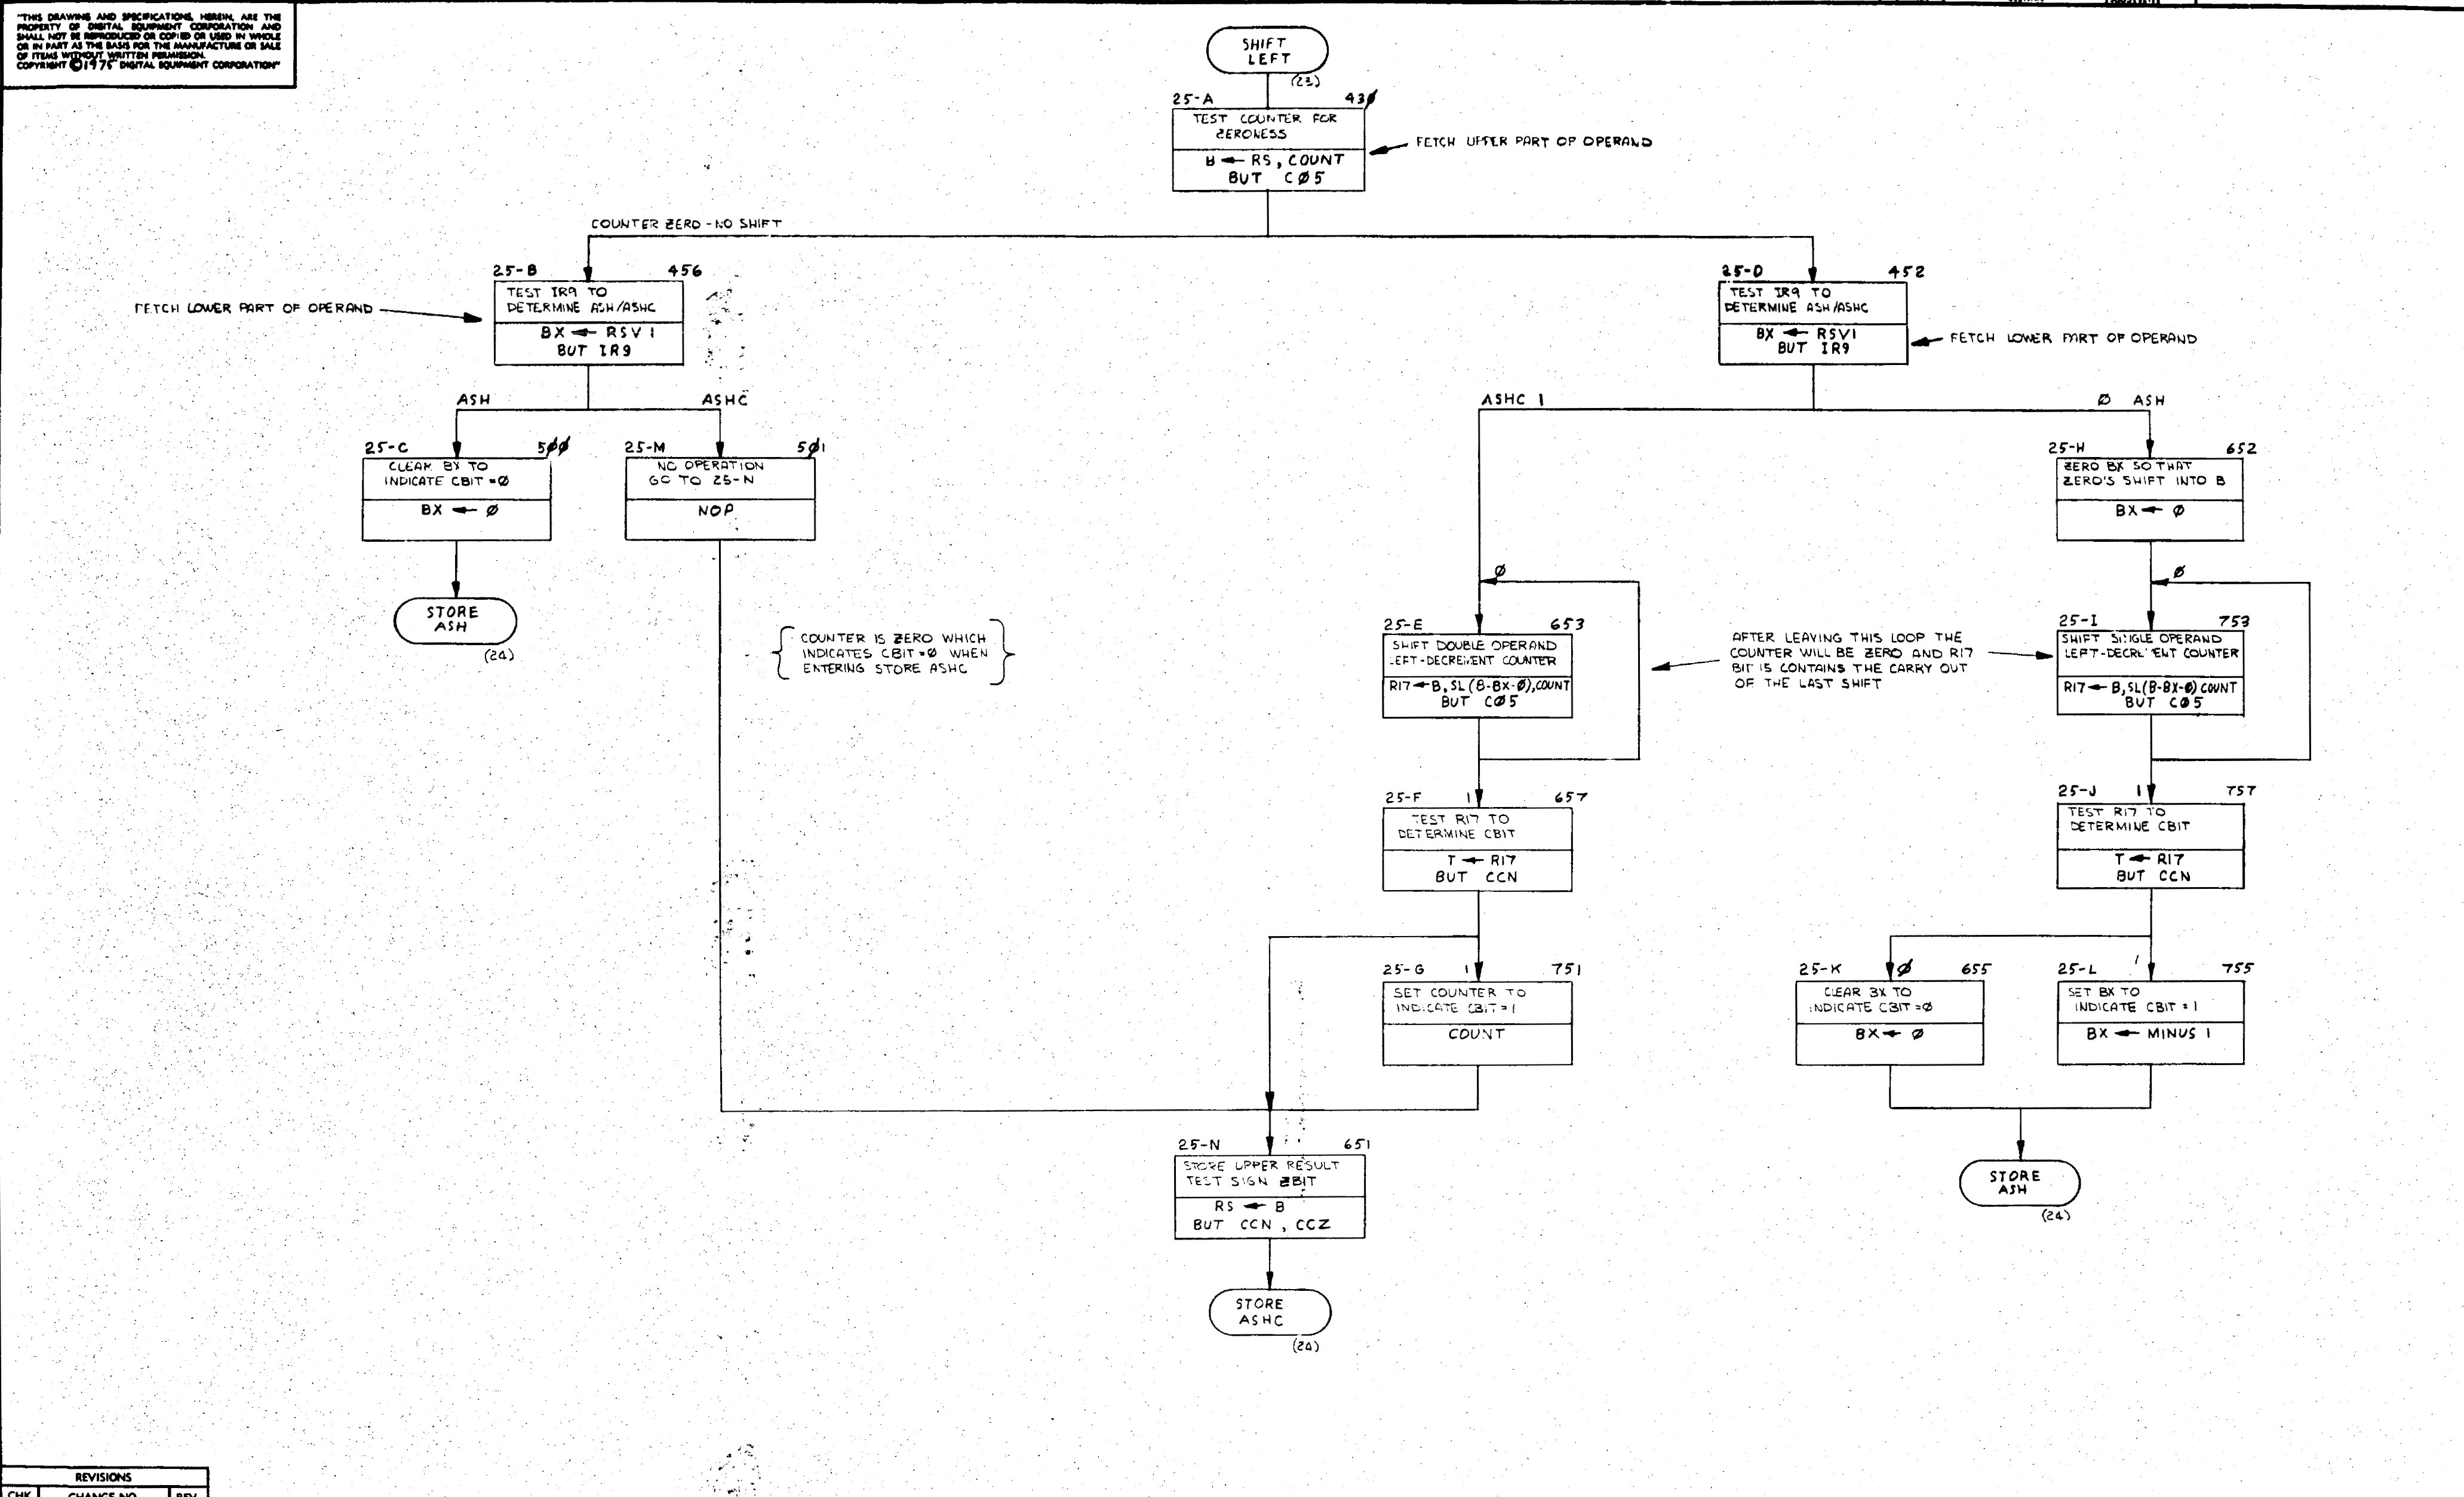 "THIS DRAWING AND SPECIFICATIONS, HEREIN, ARE THE
PROPERTY OF DIGITAL EQUIPMENT CORPORATION AND
SHALL NOT BE REPRODUCED OR COPIED OR USED IN WHOLE
OR IN PART AS THE BASIS FOR THE MANUFACTURE OR SALE
OF ITEMS WITHOUT WRITTEN PERMISSION.
COPYRIGHT ©1975 DIGITAL EQUIPMENT CORPORATION"
SHIFT
LEFT
(23)
25-A 43Ø
TEST COUNTER FOR
ZERONESS
B ← RS, COUNT
BUT CØ5
FETCH UPPER PART OF OPERAND
COUNTER ZERO - NO SHIFT
25-B 456
TEST IR9 TO
DETERMINE ASH/ASHC
BX ← RSV1
BUT IR9
FETCH LOWER PART OF OPERAND
25-D 452
TEST IR9 TO
DETERMINE ASH/ASHC
BX ← RSV1
BUT IR9
FETCH LOWER PART OF OPERAND
ASH ASHC
ASHC 1 Ø ASH
25-C 5ØØ
CLEAR BX TO
INDICATE CBIT =Ø
BX ← Ø
25-M 5Ø1
NO OPERATION
GO TO 25-N
NOP
25-H 652
ZERO BX SO THAT
ZERO'S SHIFT INTO B
BX ← Ø
STORE
ASH
(24)
COUNTER IS ZERO WHICH
INDICATES CBIT =Ø WHEN
ENTERING STORE ASHC
Ø
25-E 653
SHIFT DOUBLE OPERAND
LEFT-DECREMENT COUNTER
R17 ← B, SL(B-BX-Ø), COUNT
BUT CØ5
AFTER LEAVING THIS LOOP THE
COUNTER WILL BE ZERO AND R17
BIT 15 CONTAINS THE CARRY OUT
OF THE LAST SHIFT
Ø
25-I 753
SHIFT SINGLE OPERAND
LEFT-DECREMENT COUNTER
R17 ← B, SL(B-BX-Ø) COUNT
BUT CØ5
25-F 1 657
TEST R17 TO
DETERMINE CBIT
T ← R17
BUT CCN
25-J 1 757
TEST R17 TO
DETERMINE CBIT
T ← R17
BUT CCN
25-G 1 751
SET COUNTER TO
INDICATE CBIT = 1
COUNT
25-K Ø 655
CLEAR BX TO
INDICATE CBIT =Ø
BX ← Ø
25-L 1 755
SET BX TO
INDICATE CBIT = 1
BX ← MINUS 1
25-N 651
STORE UPPER RESULT
TEST SIGN ZBIT
RS ← B
BUT CCN, CCZ
STORE
ASH
(24)
STORE
ASHC
(24)
REVISIONS
CHK CHANGE NO. REV.